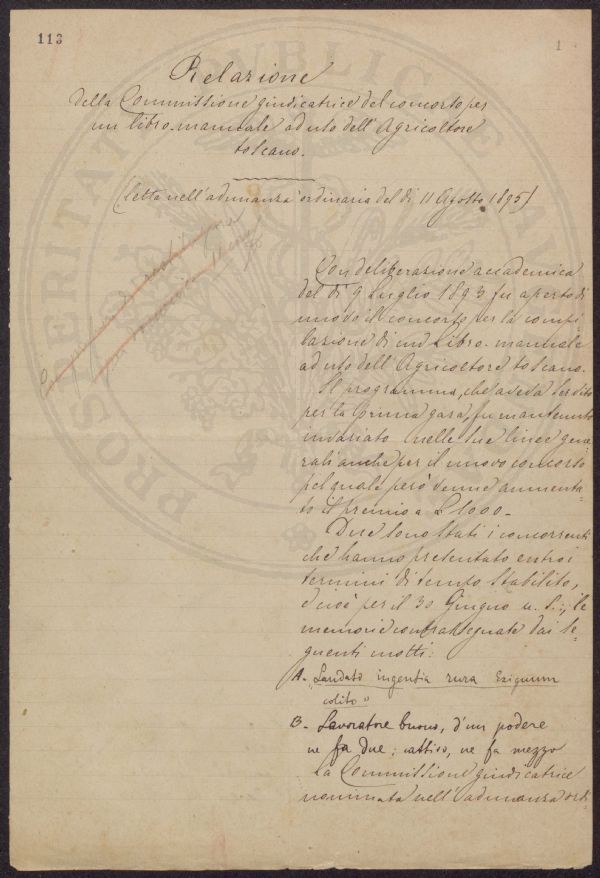 113
1
Relazione
della Commissione giudicatrice del concorso per
un libro-manuale ad uso dell'Agricoltore
toscano.
(letta nell'adunanza ordinaria del dì 11 Agosto 1895)
Con deliberazione accademica
del dì 9 Luglio 1893 fu aperto di
nuovo il concorso per la compi-
lazione di un Libro-manuale
ad uso dell'Agricoltore toscano.
Il programma, che aveva servito
per la prima gara, fu mantenuto
invariato nelle sue linee gene-
rali anche per il nuovo concorso
pel quale però venne aumenta-
to il premio a £ 1000-
Due sono stati i concorrenti
che hanno presentato entro i
termini di tempo stabilito,
cioè per il 30 Giugno u. s., le
memorie contrassegnate dai se-
guenti motti:
A- "Laudato ingentia rura Exiguum
colito"
B- Lavoratore buono, d'un podere
ne fa due; cattivo, ne fa mezzo
La Commissione giudicatrice
nominata nell'adunanza ordi-
PROSPERITATI PUBLICAE